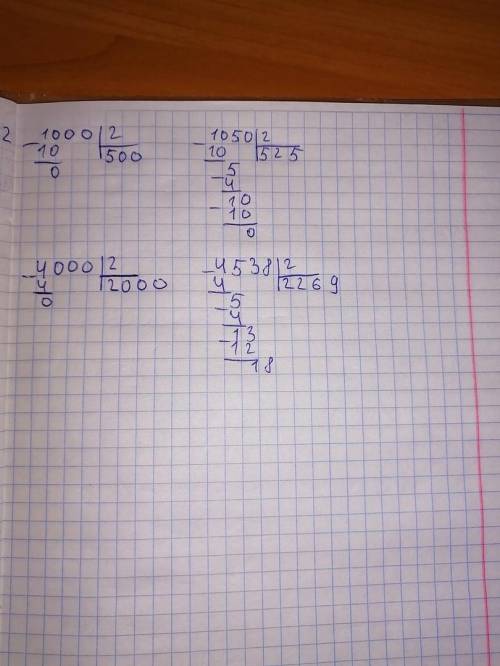 2
1000 2
10 500
0
1050 2
10 525
5
4
10
10
0
4000 2
4 2000
0
4538 2
4 2269
5
4
13
12
18